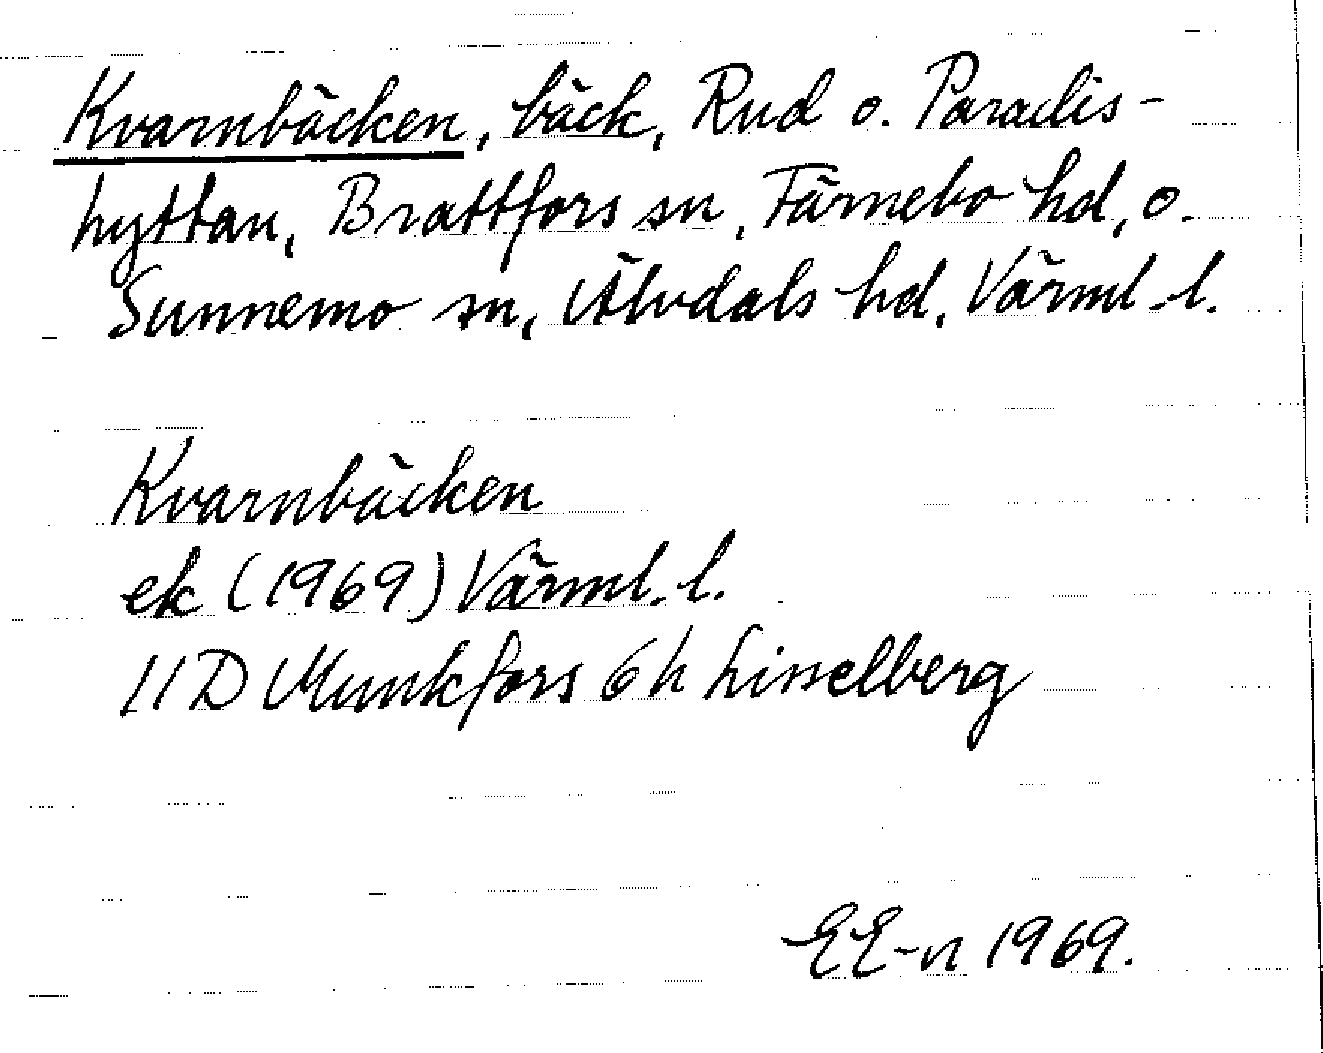 Kvarnbäcken, bäck, Rud o. Paradis-
hyttan, Brattfors sn, Färnebo hd, o.
Sunnemo sn, Älvdals hd, Värml. l.
Kvarnbäcken
ek (1969) Värml. l.
11D Munkfors 6h Lisselberg
EE-n 1969.